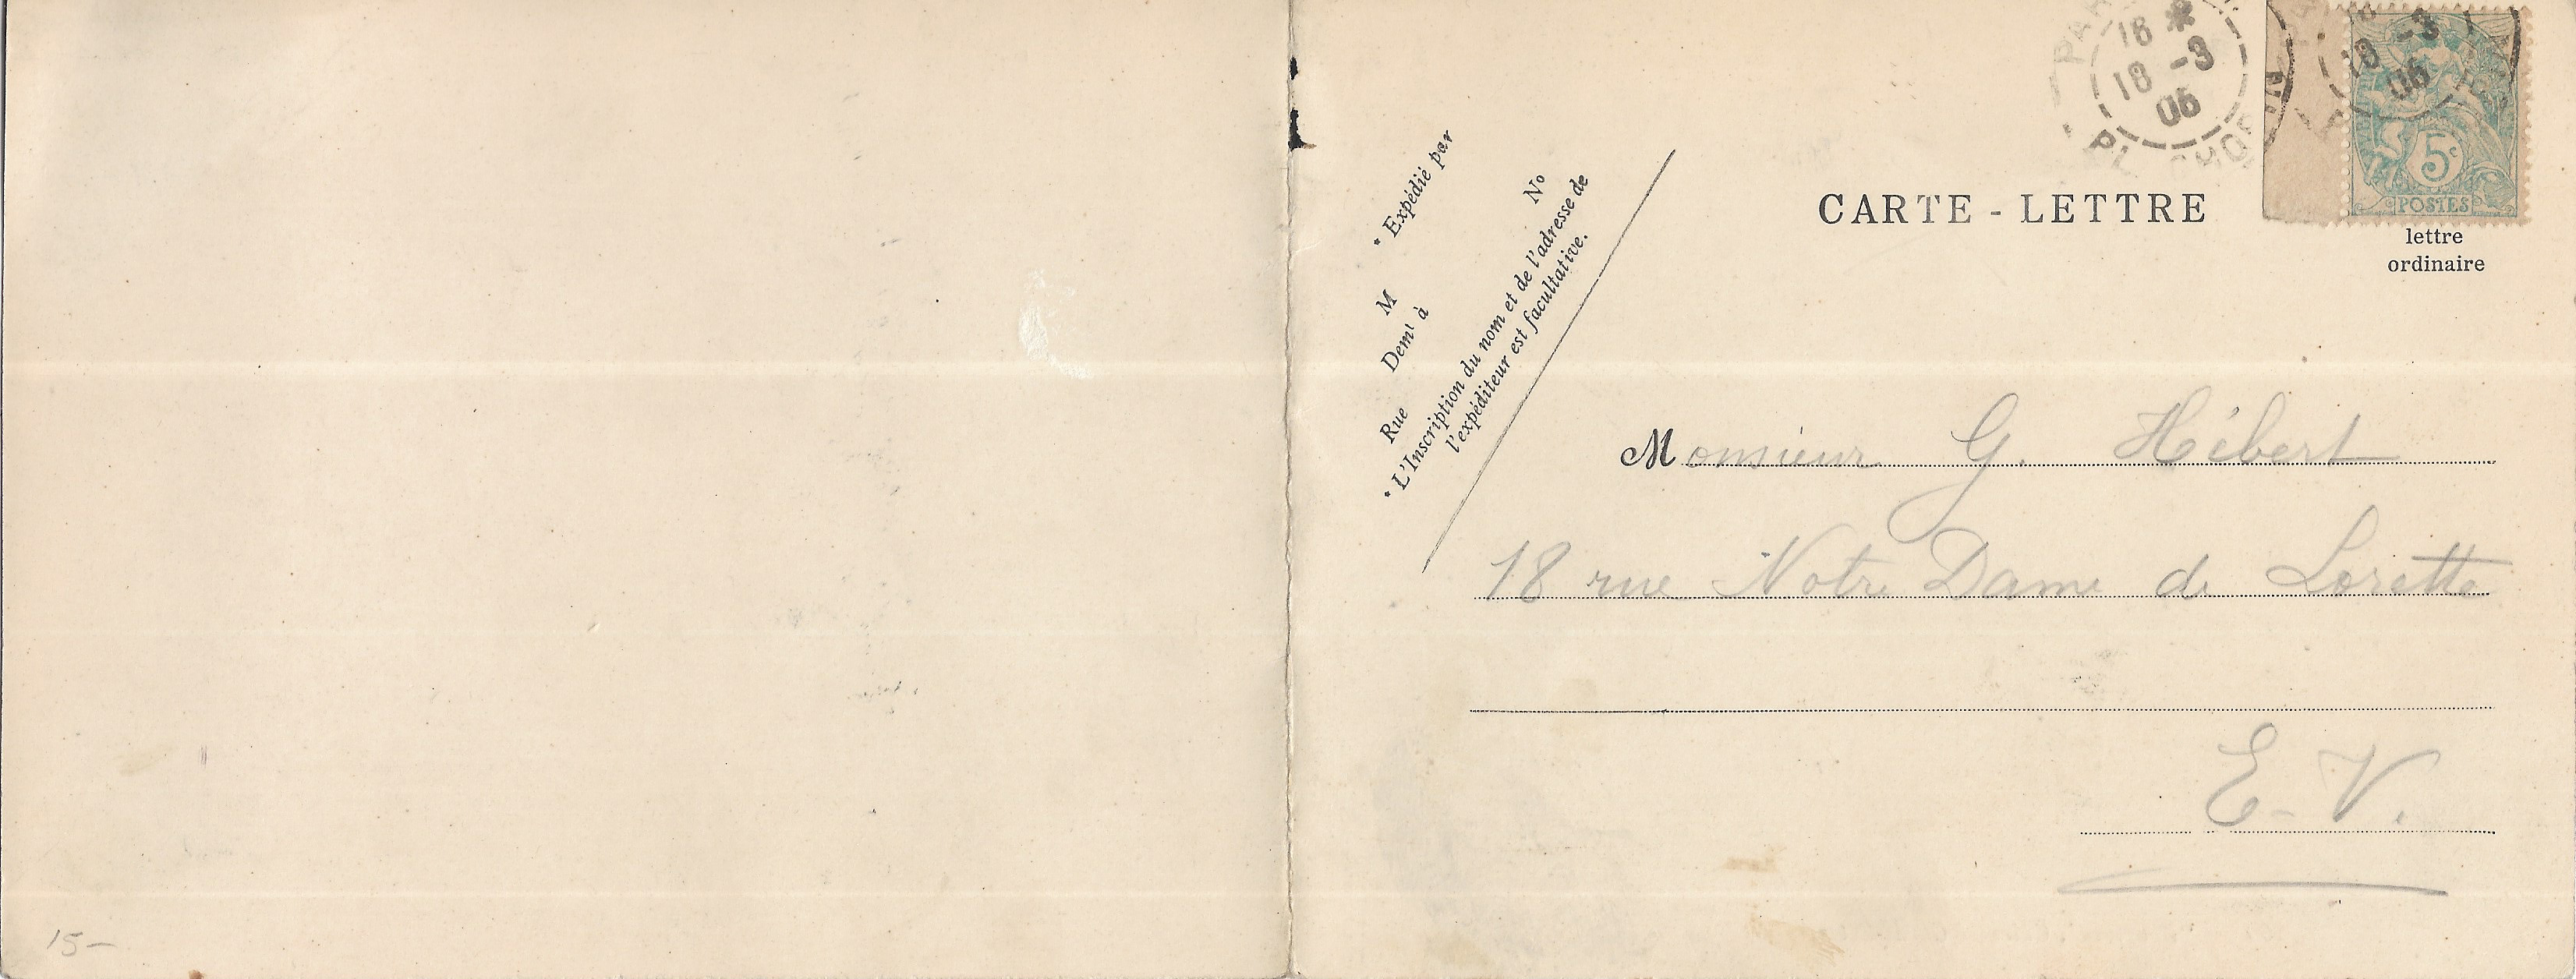 18 *
18 -3
06
18 -3
06
5c
POSTES
CARTE - LETTRE
lettre
ordinaire
* Expédié par
M
Demt à
Rue
No
* L'Inscription du nom et de l'adresse de
l'expéditeur est facultative.
Monsieur G. Hébert
18 rue Notre Dame de Lorette
E-V.
15-